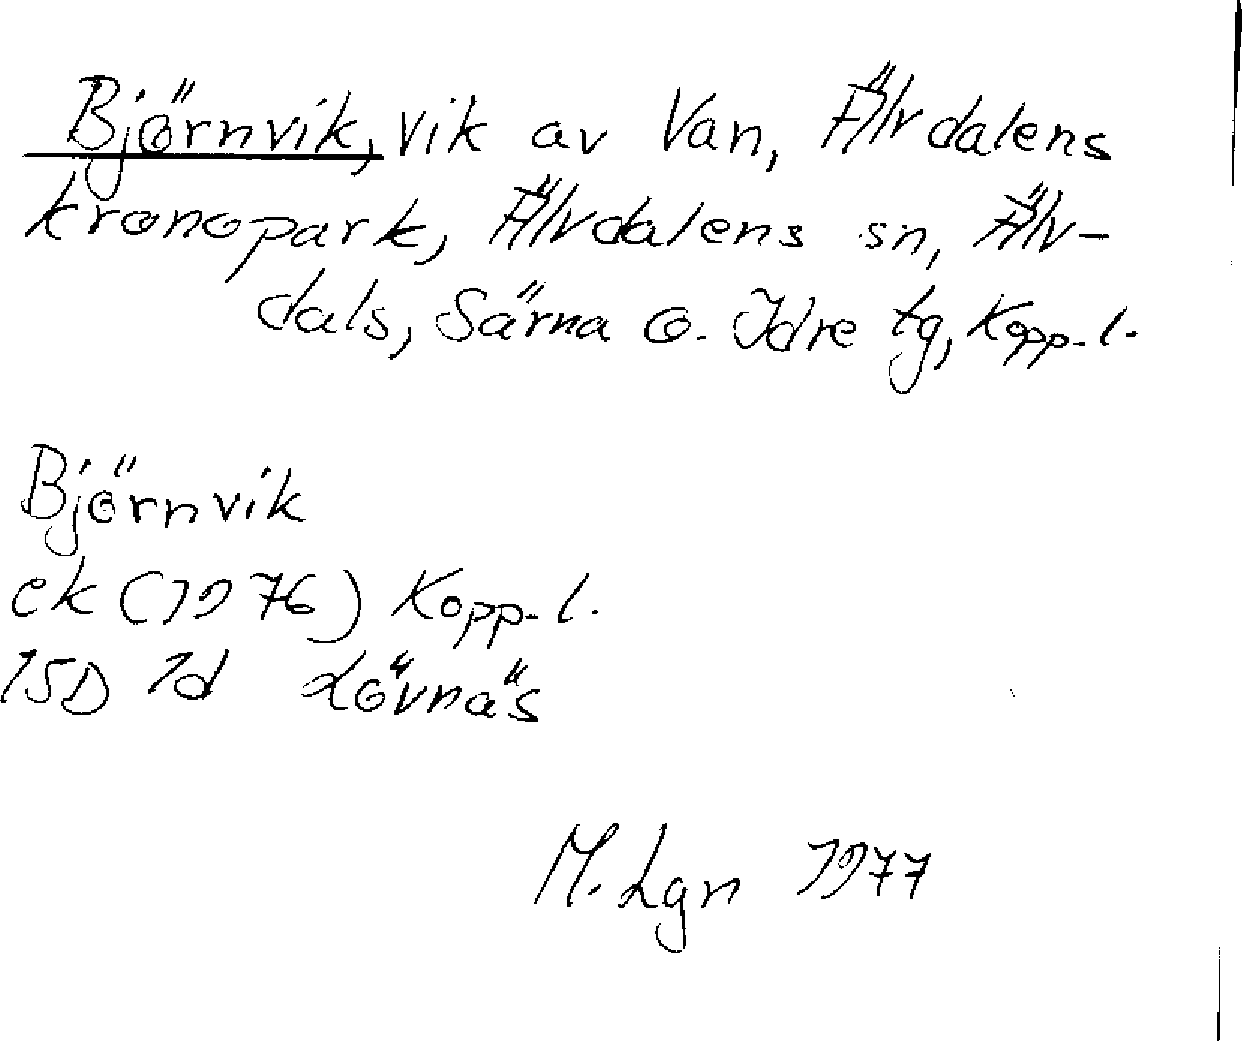 Björnvik, vik av Van, Älvdalens
kronopark, Älvdalens sn, Älv-
dals, Särna o. Idre tg, Kopp. l.
Björnvik
ek (1976) Kopp. l.
15D 1d Lövnäs
M. Lgn 1977